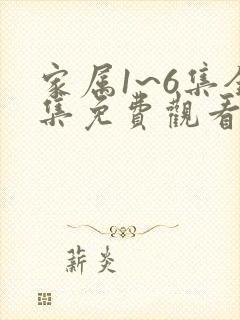 家属1~6集全
集免费觀看
薪炎